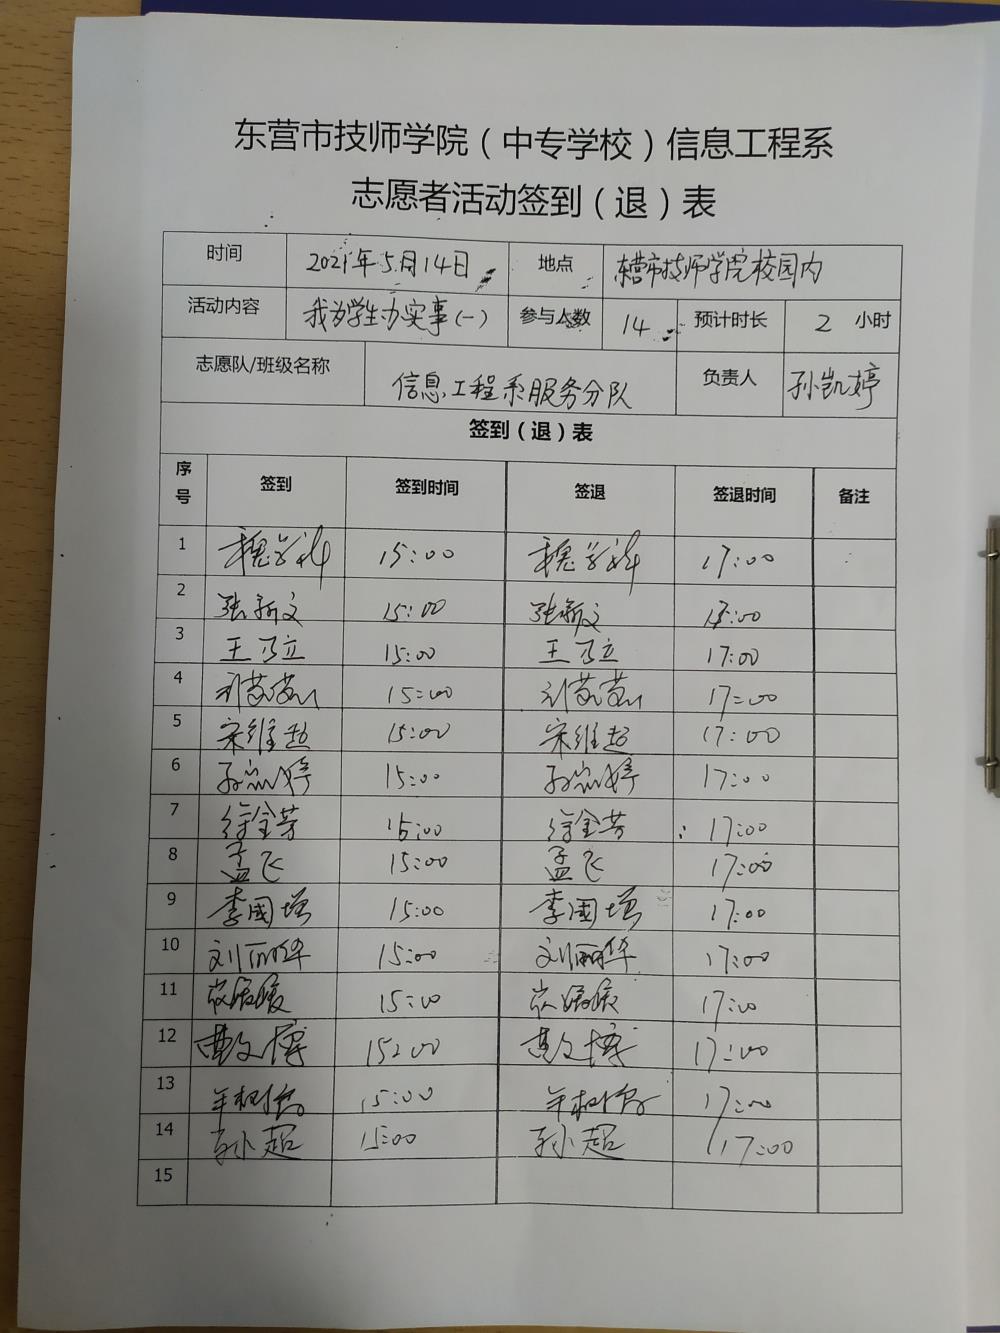 东营市技师学院（中专学校）信息工程系
志愿者活动签到（退）表
时间 2021年5月14日 地点 东营市技师学院校园内
活动内容 我为学生办实事(一) 参与人数 14 预计时长 2 小时
志愿队/班级名称 信息工程系服务分队 负责人 孙凯婷
签到（退）表
序号 签到 签到时间 签退 签退时间 备注
1 15:00 17:00
2 张新文 15:00 张新文 17:00
3 王乃立 15:00 王乃立 17:00
4 15:00 17:00
5 宋维超 15:00 宋维超 17:00
6 孙凯婷 15:00 孙凯婷 17:00
7 徐金芳 15:00 徐金芳 17:00
8 孟飞 15:00 孟飞 17:00
9 李国增 15:00 李国增 17:00
10 刘丽华 15:00 刘丽华 17:00
11 15:00 17:00
12 15:00 17:00
13 15:00 17:00
14 孙超 15:00 孙超 17:00
15